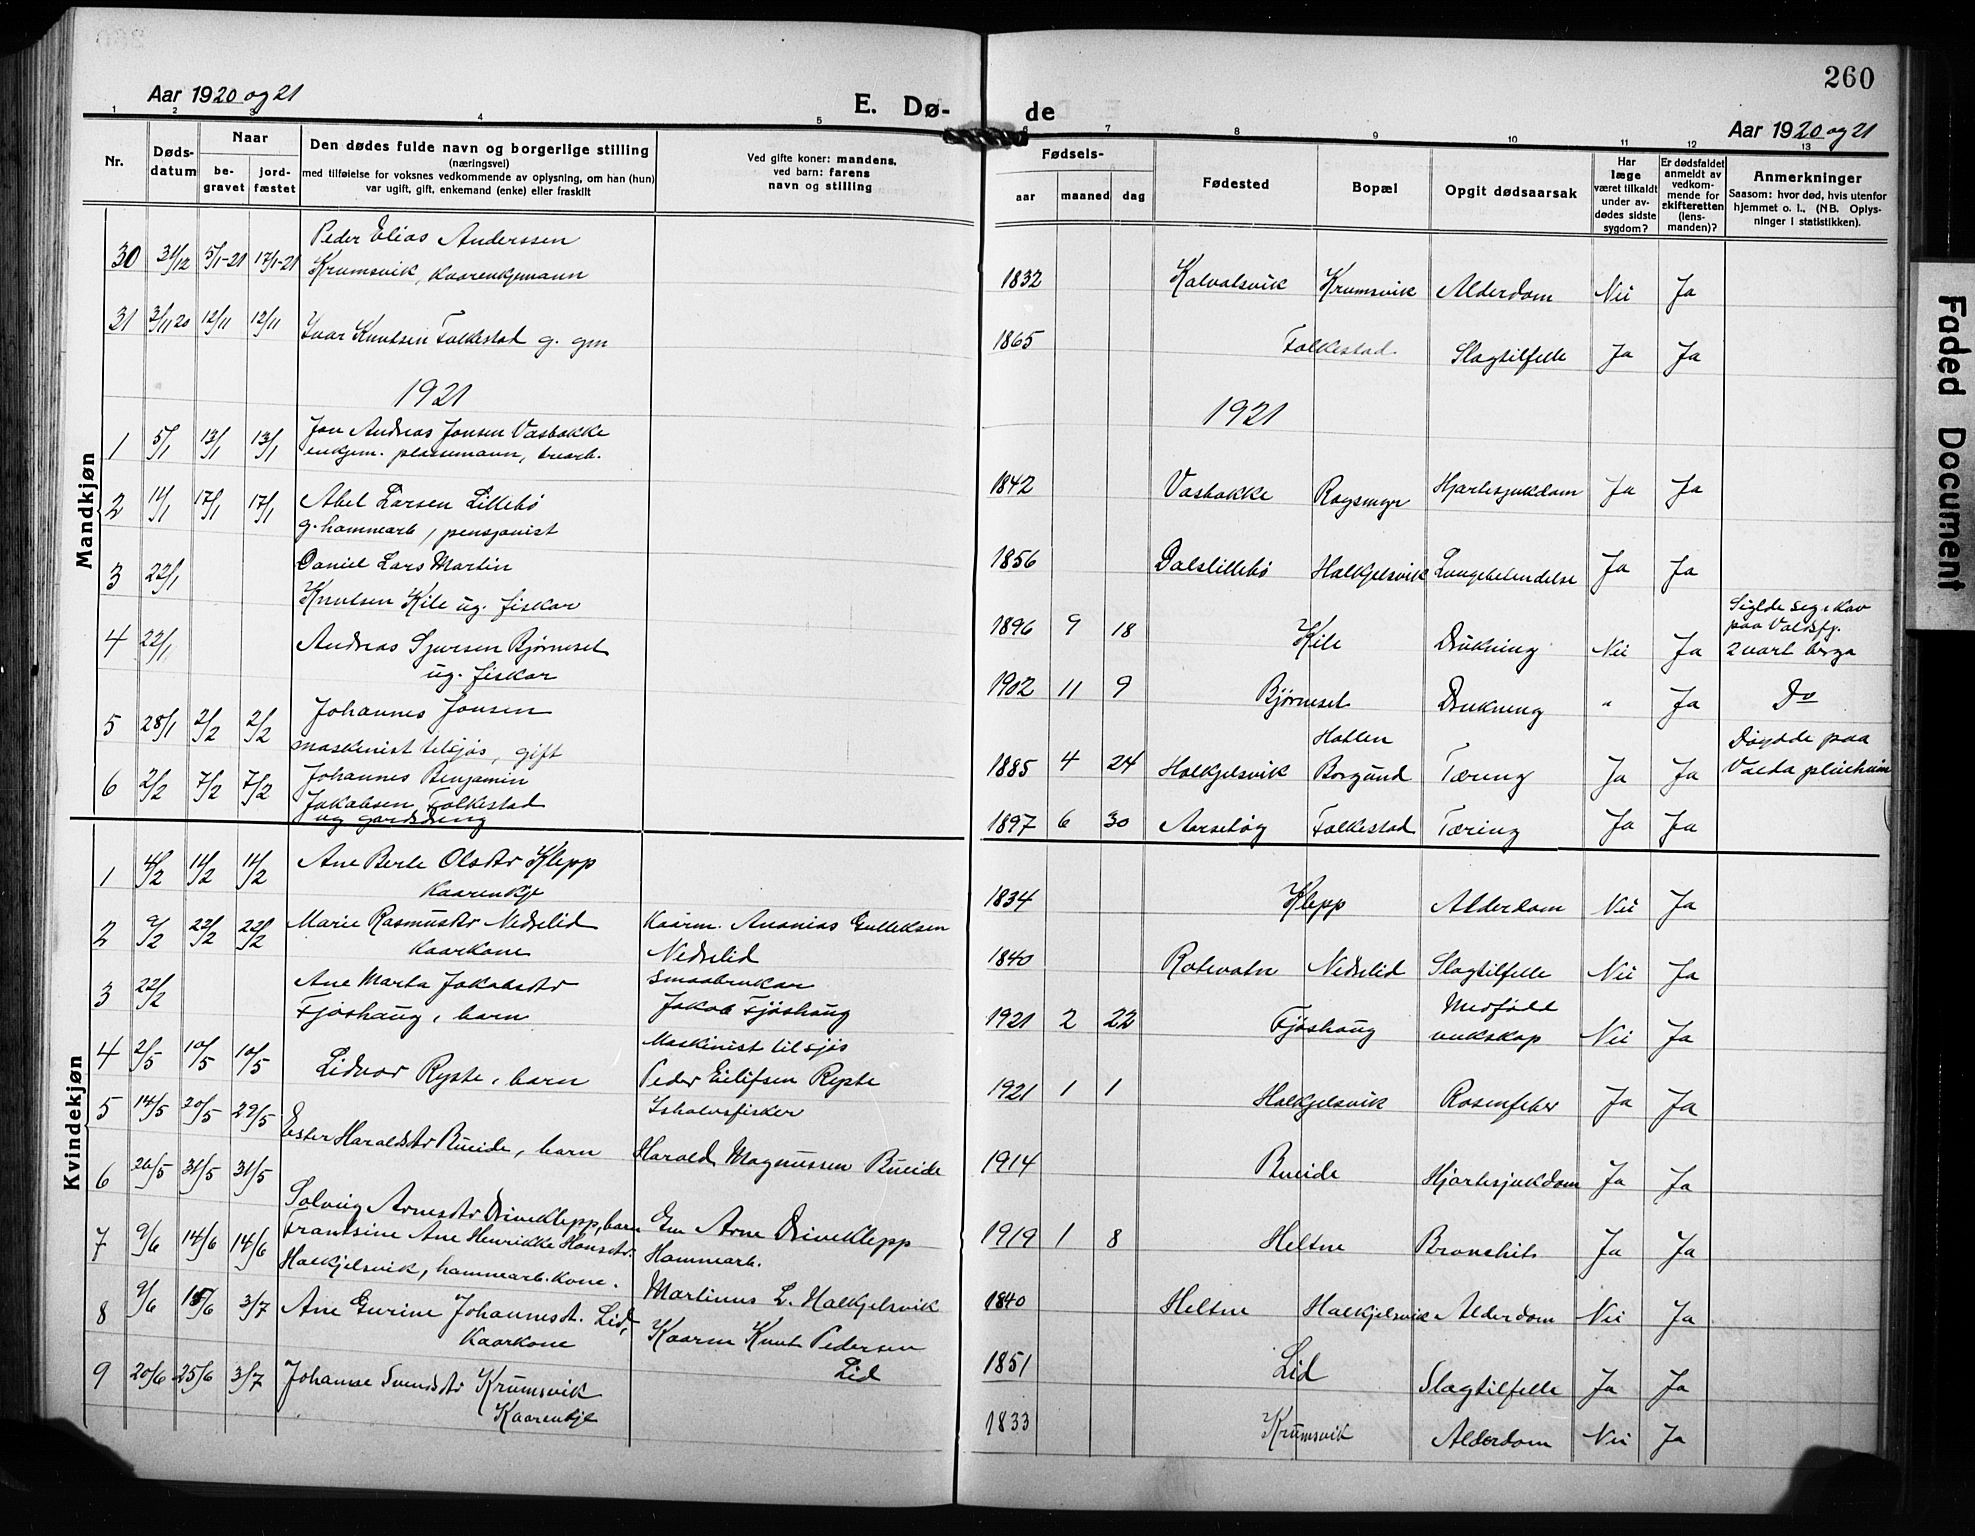 260
Aar 1920 og 21
E. Dø-
de
Aar 1920 og 21
1 2 3 4 5 6 7 8 9 10 11 12 13
Nr.
Døds-
datum
Naar
be-
gravet
jord-
fæstet
Den dødes fulde navn og borgerlige stilling
(næringsvei)
med tilføielse for voksnes vedkommende av oplysning, om han (hun)
var ugift, gift, enkemand (enke) eller fraskilt
Ved gifte koner: mandens,
ved barn: farens
navn og stilling
Fødsels-
aar
maaned
dag
Fødested
Bopæl
Opgit dødsaarsak
Har
læge
været tilkaldt
under av-
dødes sidste
sygdom?
Er dødsfaldet
anmeldt av
vedkom-
mende for
skifteretten
(lens-
manden)?
Anmerkninger
Saasom: hvor død, hvis utenfor
hjemmet o. l., (NB. Oplys-
ninger i statistikken).
Mandkjøn
30 31/12 5/1-21 17/1-21 Peder Elias Anderssen
Krumsvik, kaarenkjemann
1832 Kalvatsvik Krumsvik Alderdom Nei Ja
31 3/11 20 12/11 12/11 Ivar Knutsen Folkestad g. gm
1865 Folkestad Slagtilfelle Ja Ja
1921
1921
1 5/1 13/1 13/1 Jon Andreas Jonsen Vasbakke
enkjem. plassemann, trearb.
1842 Vasbakke Røysmyr Hjartesjukdom Ja Ja
2 11/1 17/1 17/1 Abel Larsen Lillebø
g. hammarb, pensjonist
1856 Dalslillebø Halkjelsvik Lungebetendelse Ja Ja
3 22/1 Daniel Lars Martin
Knutsen Kile ug. fiskar
1896 9 18 Kile Drukning Nei Ja
Siglde seg i kav
paa Valdsfj.
2 vart berga
4 22/1 Andreas Sjursen Bjørneset
ug. fiskar
1902 11 9 Bjørneset Drukning " Ja Do
5 28/1 2/2 2/2 Johannes Jonsen
maskinist tilsjøs, gift
1885 4 24 Halkjelsvik Hatlen
Borgund Tæring Ja Ja
Døydde paa
Volda pleiheim
6 2/2 7/2 7/2 Johannes Benjamin
Jakobsen Folkestad
ug gardsdreng
1897 6 30 Aarsetøg Folkestad Tæring Ja Ja
Kvindekjøn
1 4/2 14/2 14/2 Ane Berte Olsdtr Klepp
Kaarenkje
1834 Klepp Alderdom Nei Ja
2 9/2 22/2 22/2 Marie Rasmusdtr Nedrelid
kaarkone
Kaarm. Ananias Gulleksen
Nedrelid
1840 Rotevatn Nedrelid Slagtilfelle Nei Ja
3 22/2 Ane Marta Jakobsdtr
Fjøshaug, barn
smaabrukar
Jakob Fjøshaug
1921 2 22 Fjøshaug Medfødd
veikskap Nei Ja
4 2/5 10/5 10/5 Lidvar Røyste, barn
Maskinist tilsjøs
Peder Eilifsen Røyste
1921 1 1 Halkjelsvik Rosenfeber Ja Ja
5 14/5 20/5 29/5 Ester Haraldsdtr Bueide, barn
Ishavsfisker
Harald Magnussen Bueide
1914 Bueide Hjartesjukdom Ja Ja
6 26/5 31/5 31/5 Solveig Arnesdtr Driveklepp, barn
Em Arne Driveklepp
1919 1 8 Heltne Bronchit Ja Ja
7 9/6 14/6 14/6 Frantsine Ane Henrikke Hansdtr.
Halkjelsvik, hammarb. kone.
Hammarb.
Martinus L. Halkjelsvik
1840 Heltne Halkjelsvik Alderdom Nei Ja
8 9/6 15/6 3/7 Ane Gurine Johannesdt. Lid,
Kaarkone
Kaarm Knut Pedersen
Lid
1851 Lid Slagtilfelle Ja Ja
9 20/6 25/6 3/7 Johanne Svendsdtr Krumsvik
Kaarenkje
1833 Krumsvik Alderdom Nei Ja
Faded Document